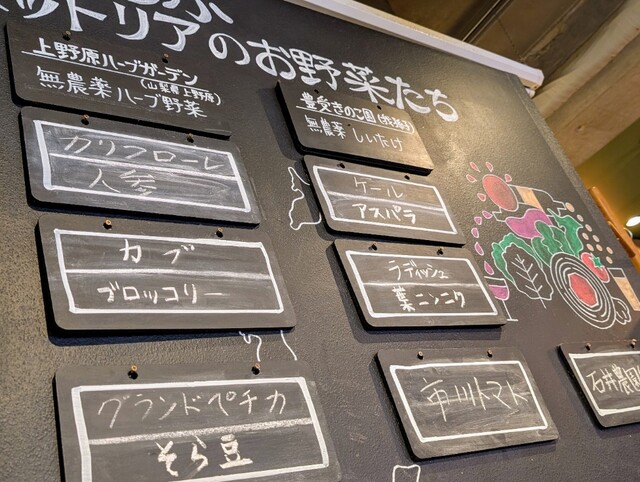 トリアのお野菜たち
上野原ハーブガーデン
(山梨県上野原)
無農薬ハーブ野菜
カリフローレ
人参
カブ
ブロッコリー
グランドペチカ
そら豆
無農薬しいたけ
ケール
アスパラ
ラディッシュ
葉ニンニク
市川トマト
石井農園